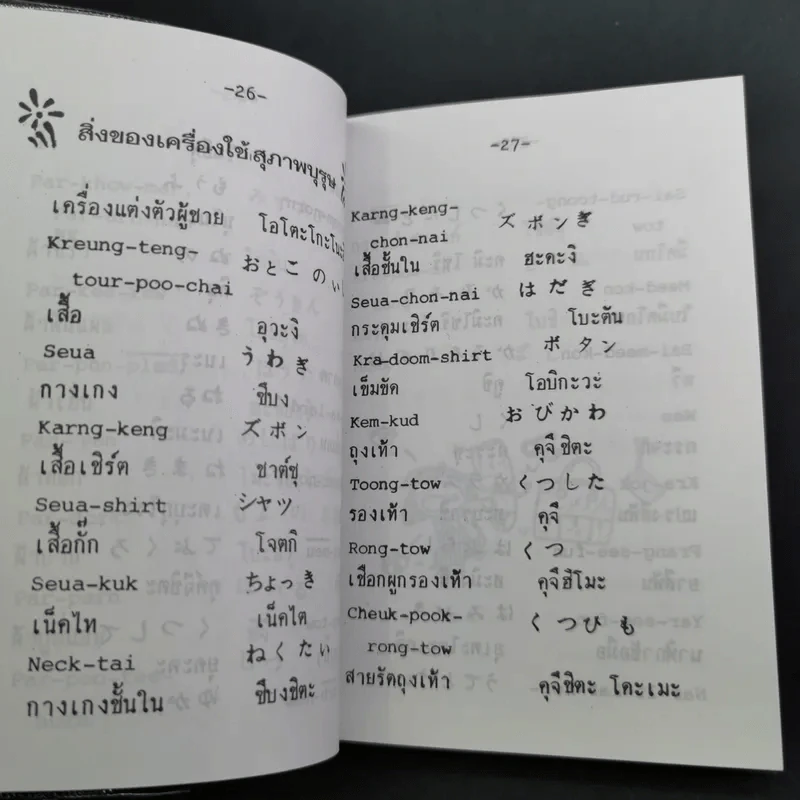 -26-
สิ่งของเครื่องใช้สุภาพบุรุษ
เครื่องแต่งตัวผู้ชาย โอโตะโกะโนะ
Kreung-teng- おとこ の い
tour-poo-chai
เสื้อ อุวะงิ
Seua うわぎ
กางเกง ซึบง
Karng-keng ズボン
เสื้อเชิร์ต ชาต์ซุ
Seua-shirt シャツ
เสื้อกั๊ก โจตกิ
Seua-kuk ちょっき
เน็คไท เน็คไต
Neck-tai ねくたい
กางเกงชั้นใน ซึบงชิตะ
-27-
Karng-keng- ズボンぎ
chon-nai
เสื้อชั้นใน ฮะดะงิ
Seua-chon-nai はだぎ
กระดุมเชิร์ต โบะตัน
Kra-doom-shirt ボタン
เข็มขัด โอบิกะวะ
Kem-kud おびかわ
ถุงเท้า คุจึชิตะ
Toong-tow くつした
รองเท้า คุจึ
Rong-tow くつ
เชือกผูกรองเท้า คุจึฮิโมะ
Cheuk-pook- くつひも
rong-tow
สายรัดถุงเท้า คุจึชิตะ โดะเมะ